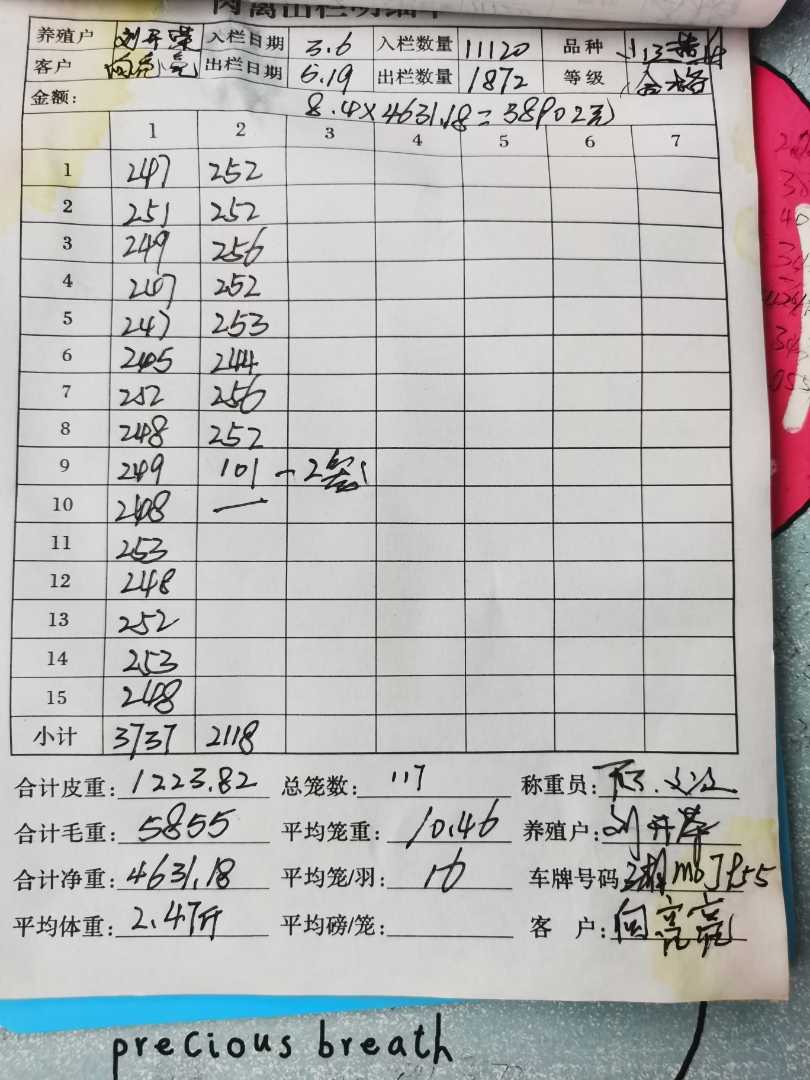 肉禽出栏明细单
养殖户 刘开荣 入栏日期 3.6 入栏数量 11120 品种
客户 向亮亮 出栏日期 6.19 出栏数量 1872 等级 合格
金额: 8.4×4631.18=38902元
1 2 3 4 5 6 7
1 247 252
2 251 252
3 249 256
4 247 252
5 247 253
6 245 244
7 252 256
8 248 252
9 249 101 - 2笼
10 248 —
11 253
12 248
13 252
14 253
15 248
小计 3737 2118
合计皮重: 1223.82 总笼数: 117 称重员:
合计毛重: 5855 平均笼重: 10.46 养殖户: 刘开荣
合计净重: 4631.18 平均笼/羽: 16 车牌号码
平均体重: 2.47斤 平均磅/笼: 客 户: 向亮亮
precious breath